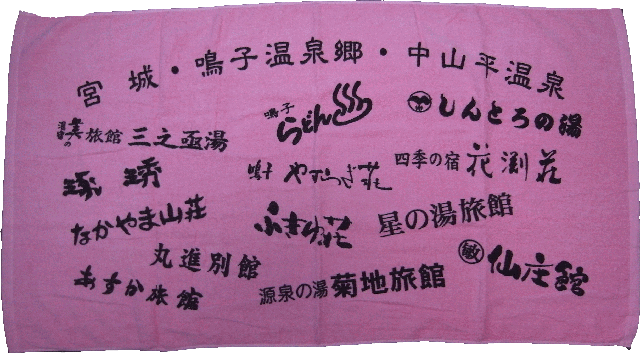 宮城・鳴子温泉郷・中山平温泉
旅館 三之亟湯
鳴子 らどん
しんとろの湯
琢琇
鳴子 やすらぎ荘
四季の宿 花渕荘
なかやま山荘
ふきゆ荘
星の湯旅館
丸進別館
あすか旅館
源泉の湯 菊地旅館
敏 仙庄館